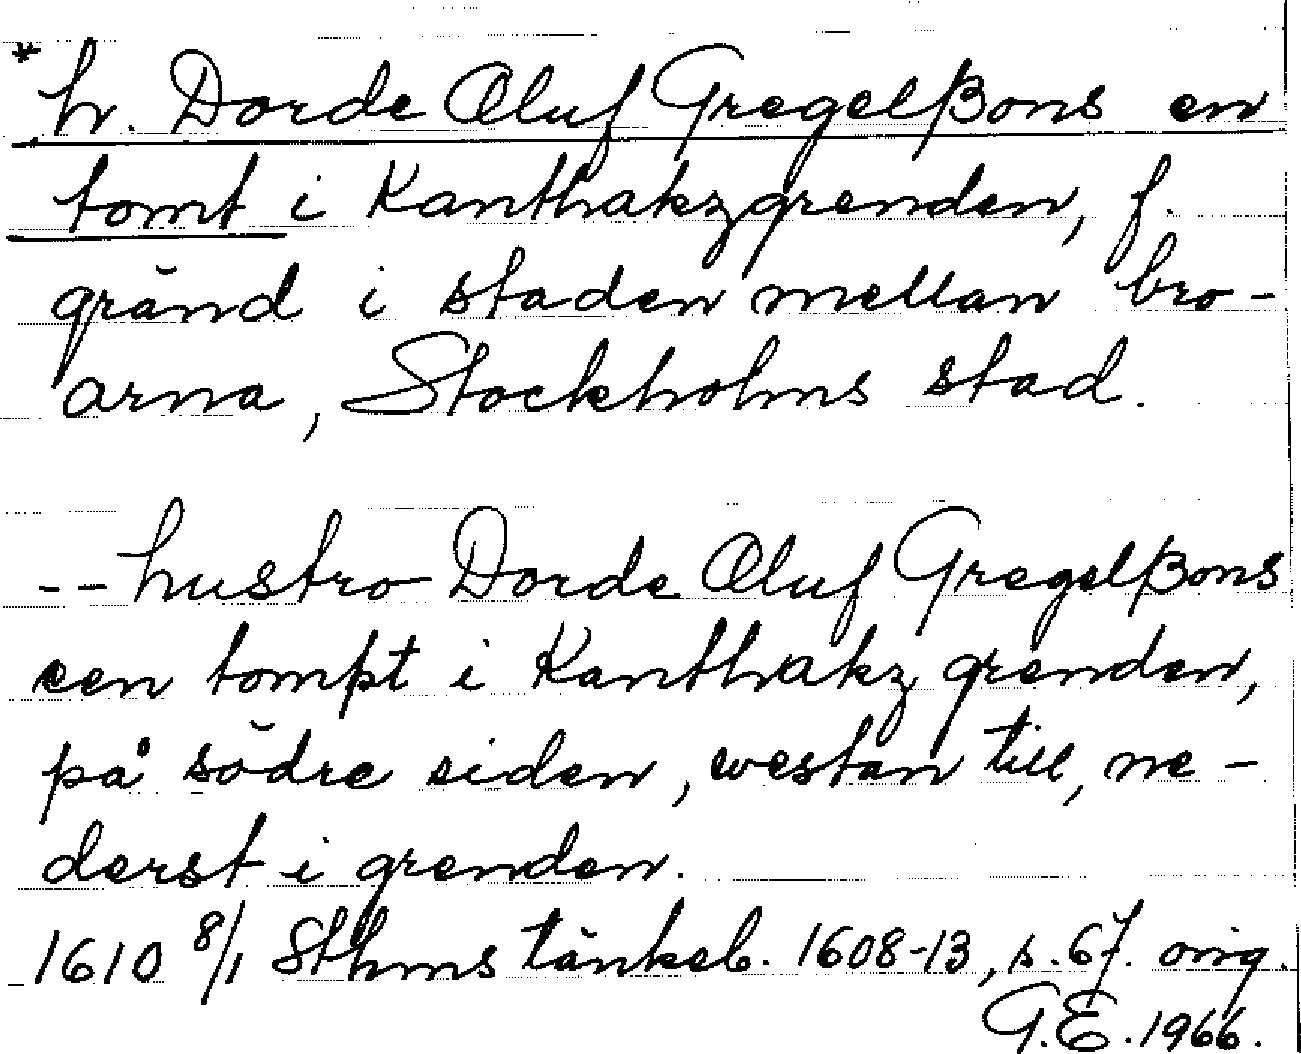 * h. Dorde Oluf Gregelßons en
tomt i Kanthakzgrenden, f.
gränd i staden mellan bro-
arna, Stockholms stad.
-- hustro Dorde Oluf Gregelßons
een tompt i Kanthakz grenden,
på södre siden, westan till, ne-
derst i grenden.
1610 8/1 Sthms tänkeb. 1608-13, s. 67. orig.
G.E. 1966.